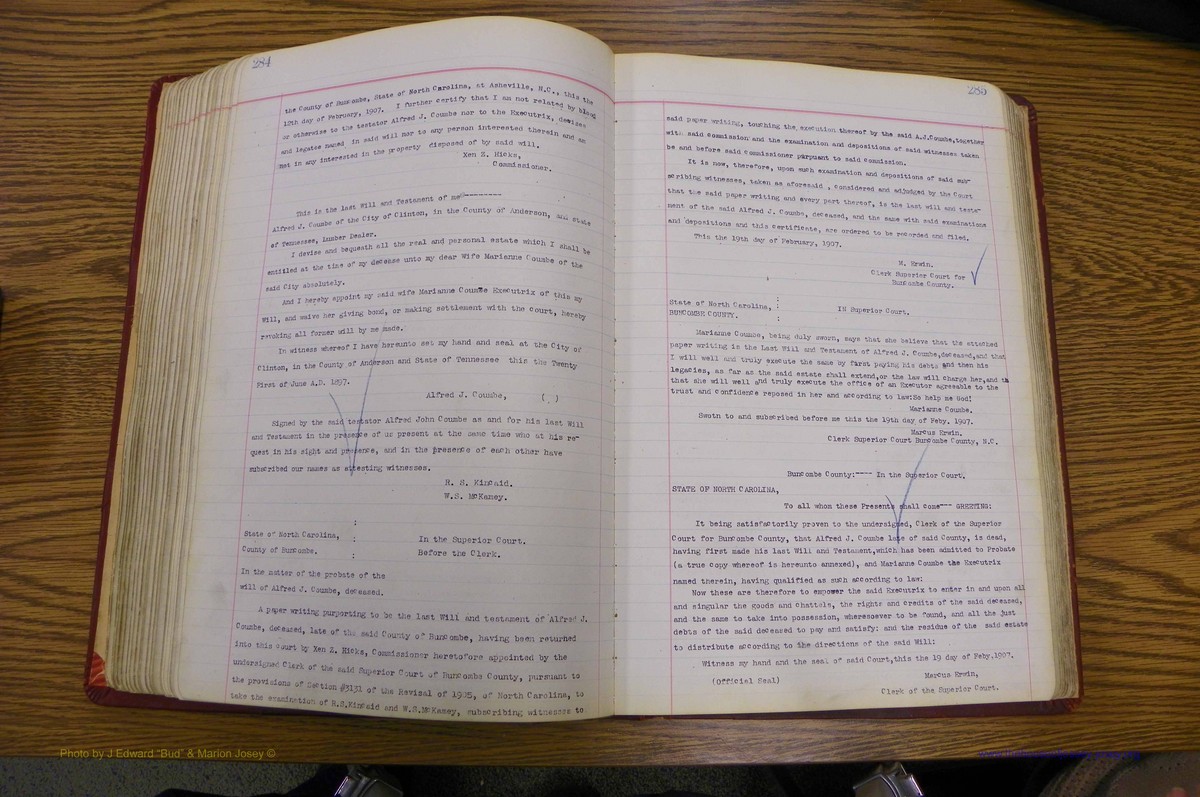 284
the County of Buncombe, State of North Carolina, at Asheville, N.C., this the
12th day of February, 1907. I further certify that I am not related by blood
or otherwise to the testator Alfred J. Coumbe nor to the Executrix, devisee
and legatee named in said will nor to any person interested therein and am
not in any interested in the property disposed of by said will.
Xen Z. Hicks,
Commissioner.
This is the last Will and Testament of me---------
Alfred J. Coumbe of the City of Clinton, in the County of Anderson, and state
of Tennessee, Lumber Dealer.
I devise and bequeath all the real and personal estate which I shall be
entitled at the time of my decease unto my dear Wife Marianne Coumbe of the
said City absolutely.
And I hereby appoint my said wife Marianne Coumbe Executrix of this my
Will, and waive her giving bond, or making settlement with the court, hereby
revoking all former will by me made.
In witness whereof I have hereunto set my hand and seal at the City of
Clinton, in the County of Anderson and State of Tennessee this the Twenty
First of June A.D. 1897.
Alfred J. Coumbe, ( )
Signed by the said testator Alfred John Coumbe as and for his last Will
and Testament in the presence of us present at the same time who at his re-
quest in his sight and presence, and in the presence of each other have
subscribed our names as attesting witnesses.
R. S. Kincaid.
W.S. McKamey.
State of North Carolina, : In the Superior Court.
County of Buncombe. : Before the Clerk.
In the matter of the probate of the
will of Alfred J. Coumbe, deceased.
A paper writing purporting to be the last Will and testament of Alfred J.
Coumbe, deceased, late of the said County of Buncombe, having been returned
into this court by Xen Z. Hicks, Commissioner heretofore appointed by the
undersigned Clerk of the said Superior Court of Buncombe County, pursuant to
the provisions of Section #3131 of the Revisal of 1905, of North Carolina, to
take the examination of R.S.Kincaid and W.S.McKamey, subscribing witnesses to
285
said paper writing, touching the execution thereof by the said A.J.Coumbe,together
with said commission and the examination and depositions of said witnesses taken
be and before said commissioner purpuant to said commission.
It is now, therefore, upon such examination and depositions of said sub-
scribing witnesses, taken as aforesaid , considered and adjudged by the Court
that the said paper writing and every part thereof, is the last will and testa-
ment of the said Alfred J. Coumbe, deceased, and the same with said examinations
and depositions and this certificate, are ordered to be recorded and filed.
This the 19th day of February, 1907.
M. Erwin.
Clerk Superior Court for
Buncombe County.
State of North Carolina, :
BUNCOMBE COUNTY. : IN Superior Court.
Marianne Coumbe, being duly sworn, says that she believe that the attached
paper writing is the Last Will and Testament of Alfred J. Coumbe,deceased,and that
I will well and truly execute the same by first paying his debts and then his
legacies, as far as the said estate shall extend,or the law will charge her,and th
that she will well and truly execute the office of an Executor agreeable to the
trust and confidence reposed in her and according to law:So help me God!
Marianne Coumbe.
Swotn to and subscribed before me this the 19th day of Feby. 1907.
Marcus Erwin.
Clerk Superior Court Buncombe County, N.C.
Buncombe County:---- In the Superior Court.
STATE OF NORTH CAROLINA,
To all whom these Presents shall come--- GREETING:
It being satisfactorily proven to the undersigned, Clerk of the Superior
Court for Buncombe County, that Alfred J. Coumbe late of said County, is dead,
having first made his last Will and Testament,which has been admitted to Probate
(a true copy whereof is hereunto annexed), and Marianne Coumbe the Executrix
named therein, having qualified as such according to law:
Now these are therefore to empower the said Executrix to enter in and upon all
and singular the goods and Chattels, the rights and credits of the said deceased,
and the same to take into possession, wheresoever to be found, and all the just
debts of the said deceased to pay and satisfy: and the residue of the said estate
to distribute according to the directions of the said Will:
Witness my hand and the seal of said Court,this the 19 day of Feby.1907.
(Official Seal) Marcus Erwin,
Clerk of the Superior Court.
Photo by J Edward "Bud" & Marion Josey ©